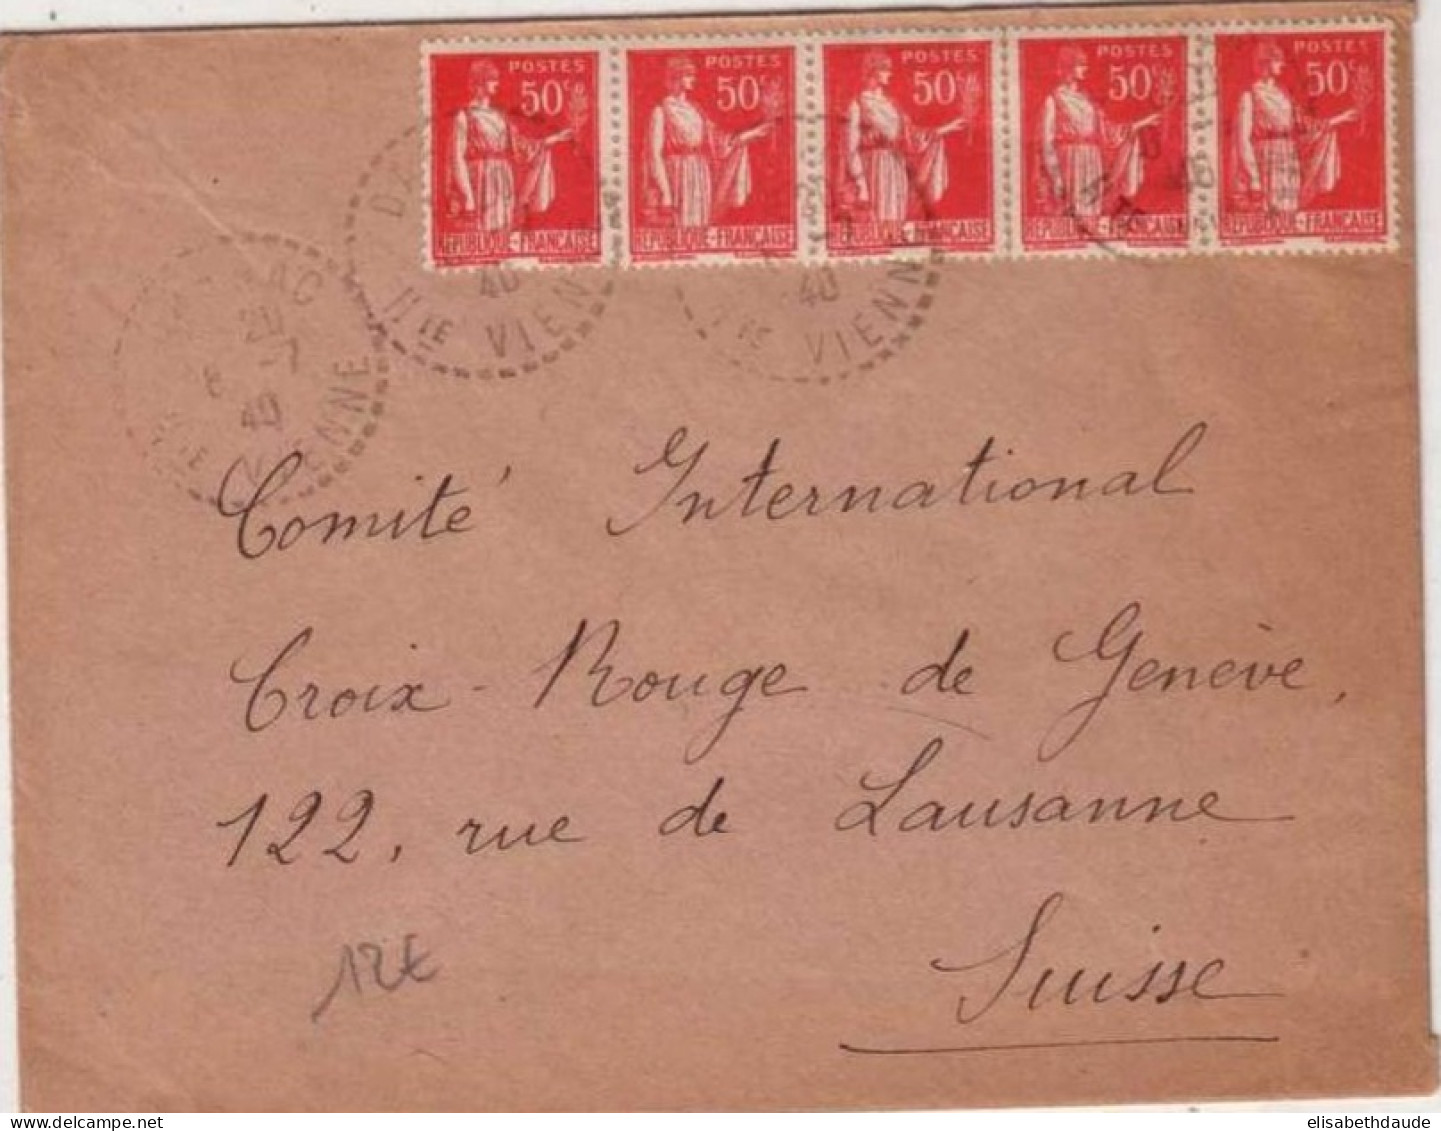 POSTES POSTES POSTES POSTES POSTES
50c 50c 50c 50c 50c
REPUBLIQUE-FRANCAISE REPUBLIQUE-FRANCAISE REPUBLIQUE-FRANCAISE REPUBLIQUE-FRANCAISE REPUBLIQUE-FRANCAISE
40
Hte VIENNE
40
Hte VIENN
AC
20
8 -7
40
Hte VIENNE
Comité International
Croix-Rouge de Genève,
122, rue de Lausanne
Suisse
12€
delcampe.net
elisabethdaude